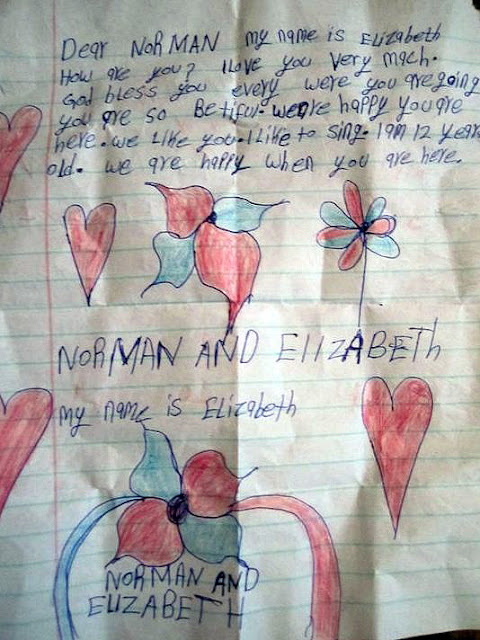 Dear NORMAN my name is Elizabeth
How are you? I love you very mach.
God bless you every were you are going
you are so Betiful. we are happy you are
here. we like you. I like to sing. I am 12 year
old. we are happy when you are here.
NORMAN AND ElIZABETh
my name is Elizabeth
NORMAN AND
ELIZABETH